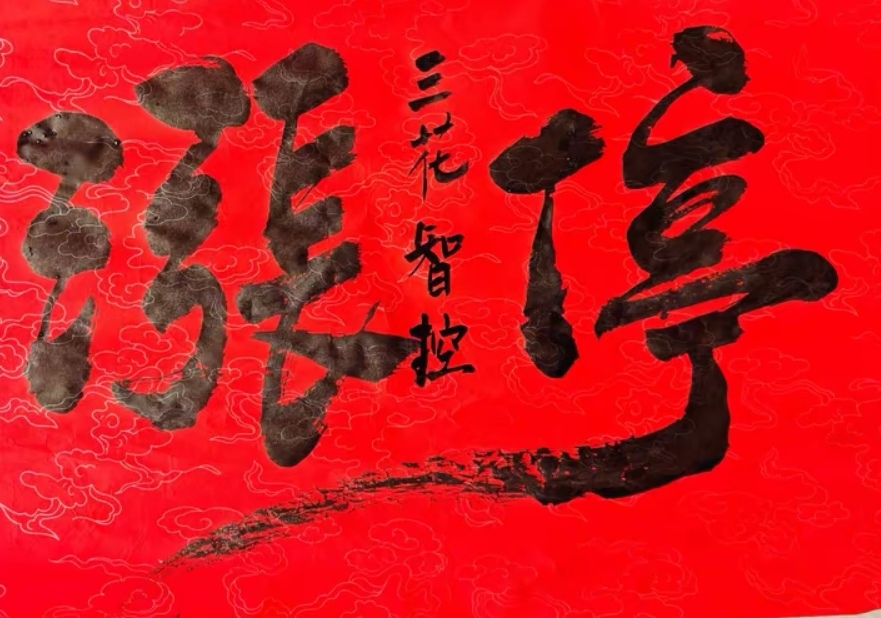 漲停
三花智控